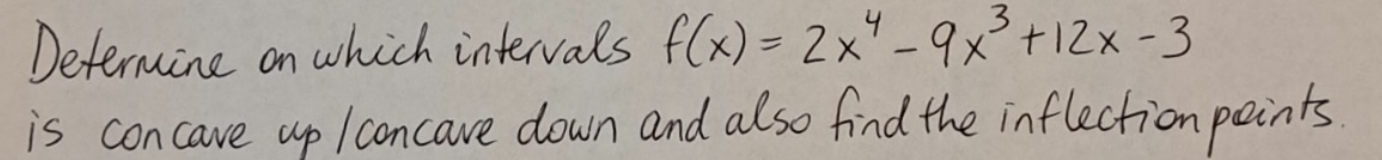 Determine on which intervals f(x) = 2x⁴ - 9x³ + 12x - 3
is concave up / concave down and also find the inflection points.